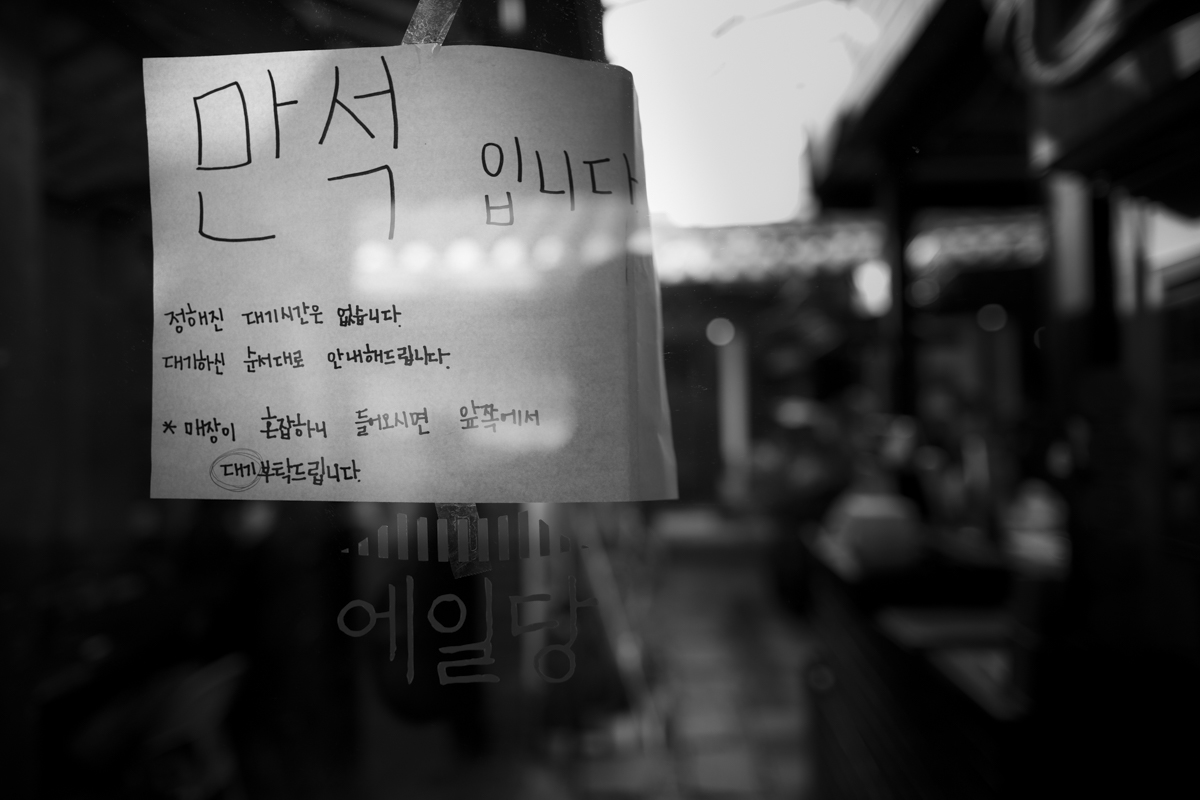 만석 입니다
정해진 대기시간은 없습니다.
대기하신 순서대로 안내해드립니다.
* 매장이 혼잡하니 들어오시면 앞쪽에서
대기부탁드립니다.
에일당